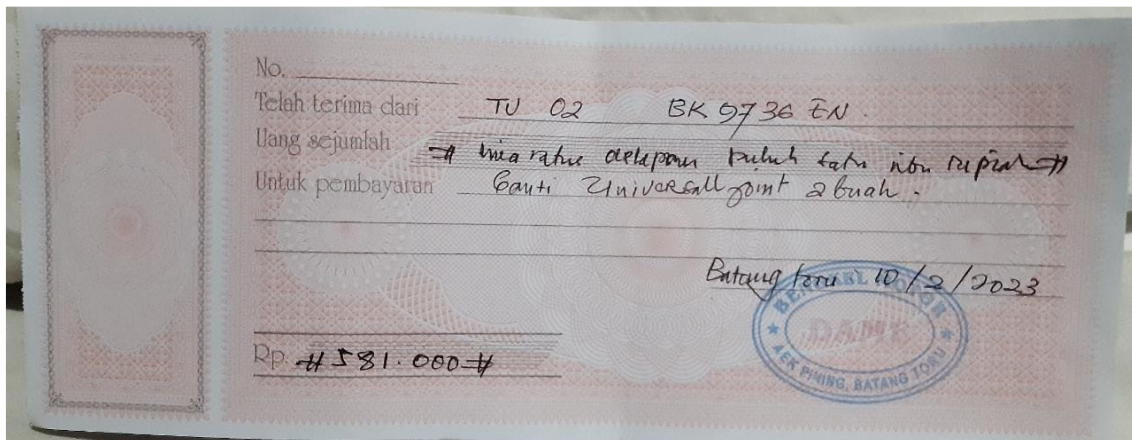 No.
Telah terima dari TU 02 BK 9736 EN.
Uang sejumlah # lima ratus delapan puluh satu ribu rupiah #
Untuk pembayaran Ganti Universall joint 2 buah.
Batang toru 10/2/2023
BENGKEL MOTOR
DAME
AEK PINING, BATANG TORU
Rp. # 581.000 #